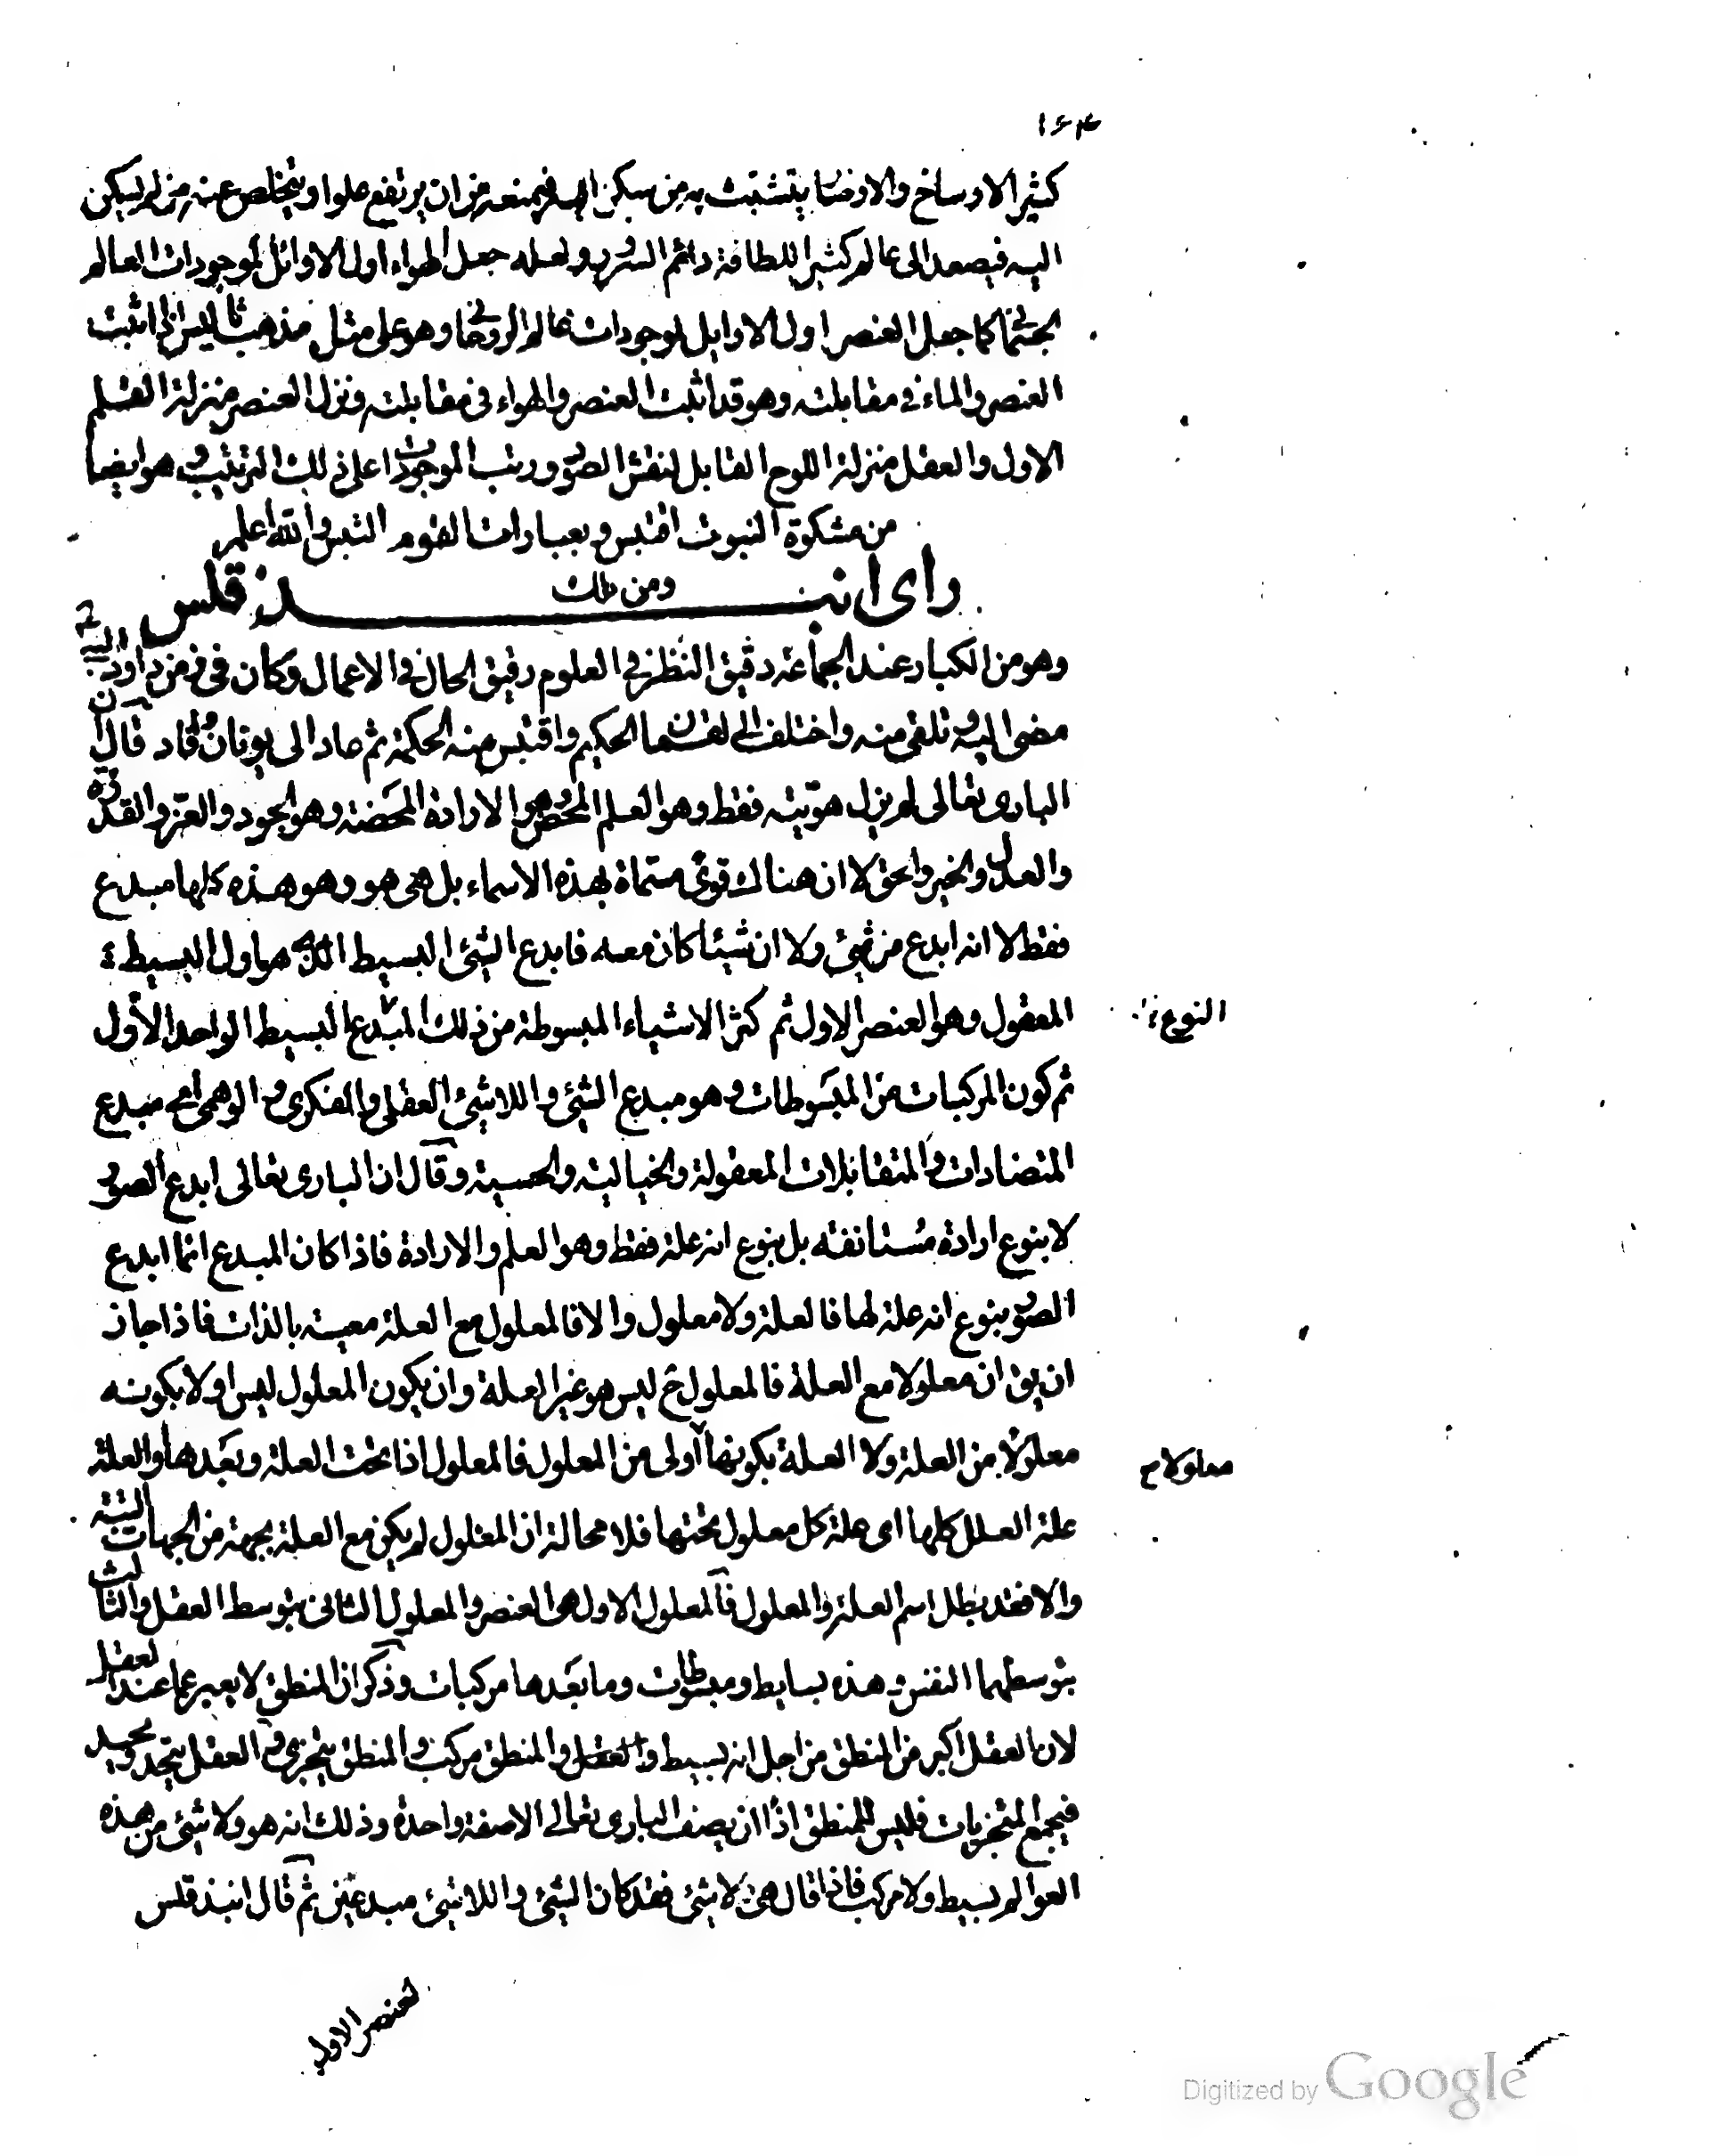 ١٦٤
كثير الاوساخ والاوضار يتشبث به من سكن اليه فيمنعه من ان يرتفع علوا ويتخلص عنه من لم يسكن
اليه فيصعد الى عالم كثير اللطافة دائم السرور ولعله جعل الهواء اول الاوائل لموجودات العالم
الجسماني كما جعل العنصر اول الاوايل لموجودات عالم الروحاني وهو على مثل مذهب ثاليس اذ اثبت
العنصر والماء في مقابلته وهو قد اثبت العنصر والهواء في مقابلته ونزل العنصر منزلة القلم
الاول والعقل منزلة اللوح القابل لنقش الصور ورتب الموجودات على ذلك الترتيب وهو ايضا
من مشكوة النبوت اقتبس وبعبارات القوم التبس والله اعلم
ومن ذلك
راى انبذقلس
وهو من الكبار عند الجماعة دقيق النظر في العلوم رقيق الحال في الاعمال وكان في زمن داود النبي
مضى اليه وتلقى منه واختلف الى لقمان الحكيم واقتبس منه الحكمة ثم عاد الى يونان وافاد قال ان
البارى تعالى لم يزل هويته فقط وهو العلم المحض وهو الارادة المحضة وهو الجود والعز والقدرة
والعدل والخير والحق لا ان هناك قوى مسماة بهذه الاسماء بل هى هو وهو هذه كلها مبدع
فقط لا انه ابدع من شئ ولا ان شيئا كان معه فابدع الشئ البسيط الذى هو اول البسيط
المعقول وهو العنصر الاول ثم كثر الاشياء المبسوطة من ذلك المبدع البسيط الواحد الاول
النوع
ثم كون المركبات من المبسوطات وهو مبدع الشئ واللاشئ العقلى والفكرى والوهمى اى مبدع
المتضادات والمتقابلات المعقولة والخيالية والحسية وقال ان البارى تعالى ابدع الصور
لا بنوع ارادة مستانفة بل بنوع انه علة فقط وهو العلم والارادة فاذا كان المبدع انما ابدع
الصور بنوع انه علة لها فالعلة ولا معلول والا فالمعلول مع العلة معية بالذات فاذا جاز
ان يق ان معلولا مع العلة فالمعلول ح ليس هو غير العلة وان يكون المعلول ليس اولا بكونه
معلولا من العلة ولا العلة بكونها اولى من المعلول فالمعلول اذا تحت العلة وبعدها والعلة
معلولا م
علة العلل كلها اى علة كل معلول تحتها فلا محالة ان المعلول لم يكن مع العلة بجهة من الجهات البتة
والا فقد بطل اسم العلة والمعلول فالمعلول الاول هى العنصر والمعلول الثانى بتوسط العقل والثالث
بتوسطهما النفس وهذه بسايط ومبسوطات وما بعدها مركبات وذكر ان المنطق لا يعبر عما عند العقل
لان العقل اكبر من المنطق من اجل انه بسيط والعقل والمنطق مركب والمنطق يتجزى والعقل يتحد
فيجمع المتجزيات فليس للمنطق اذا ان يصف البارى تعالى الا صفة واحدة وذلك انه هو ولا شئ من هذه
العوالم بسيط ولا مركب فاذا قال هى لا شئ فقد كان الشئ واللاشئ مبدعين ثم قال انبذقلس
لعنصر الاول
Digitized by Google